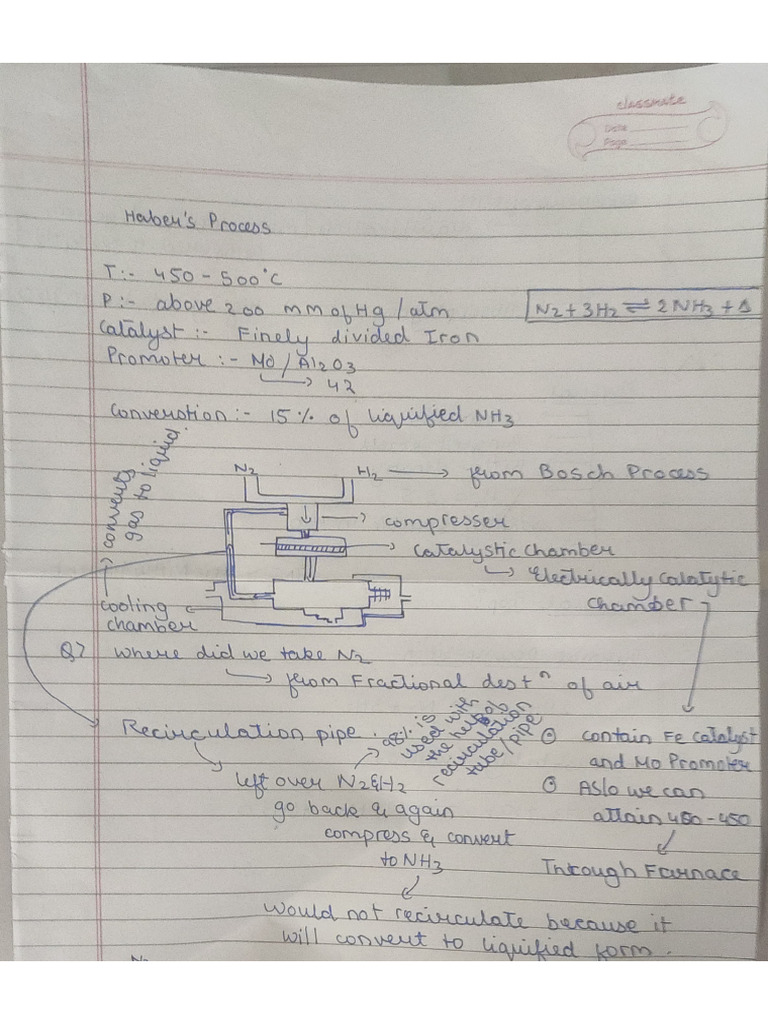 classmate
Date
Page
Haber's Process
T:- 450 - 500°C
P:- above 200 mm of Hg / atm
N2 + 3H2 ⇌ 2NH3 + Δ
Catalyst :- Finely divided Iron
Promoter :- Mo / Al2O3
→ 42
Converstion :- 15% of liquified NH3
converts
gas to liquid.
N2
H2 → from Bosch Process
→ compresser
→ Catalystic chamber
→ Electrically Catalytic
chamber
cooling
chamber
Q7 where did we take N2
→ from Fractional destn of air
Recirculation pipe.
98% is
used with
the help of
recirculation
tube/pipe.
left over N2 & H2
go back & again
compress & convert
to NH3
would not recirculate because it
will convert to liquified form.
① contain Fe catalyst
and Mo Promoter
② Aslo we can
attain 400-450
Through Farnace